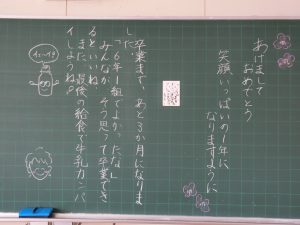 あけまして
おめでとう
笑顔いっぱいの1年に
なりますように
卒業まで、あと3か月になりま
した。
「6年1組でよかったな」
みんなが、そう思って卒業でき
るといいね。
また、最後の給食で牛乳カンパ
イしようね。
イェーイ